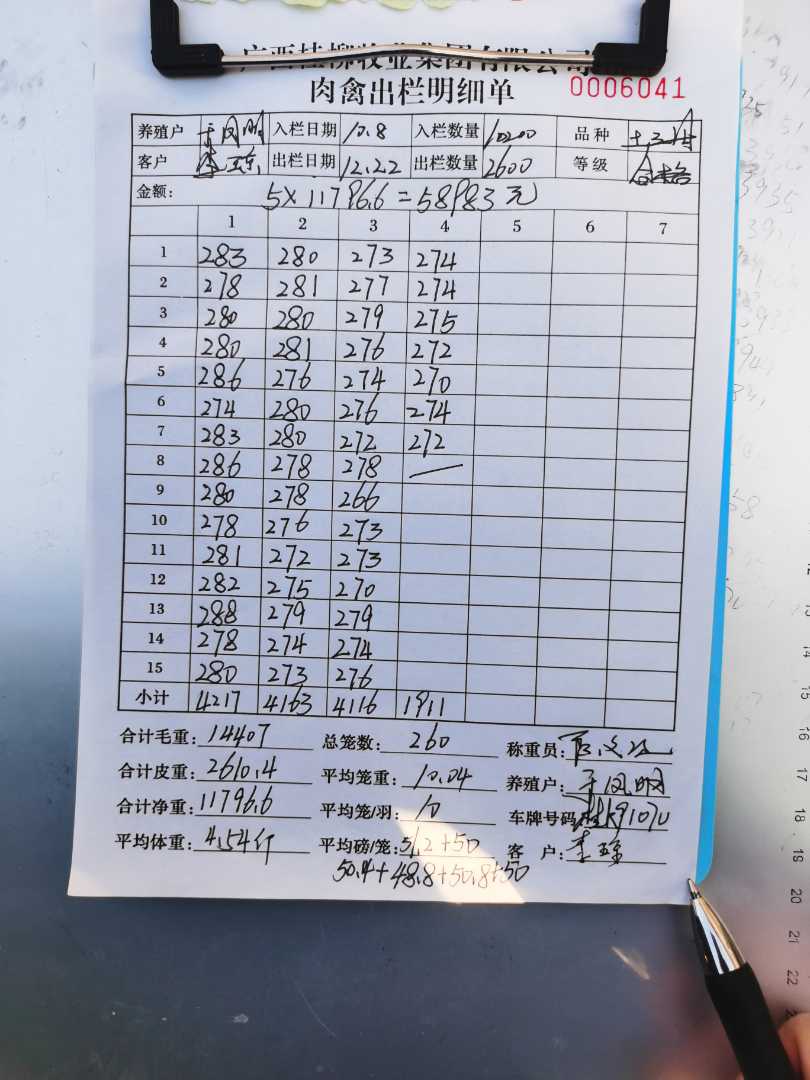 肉禽出栏明细单 0006041
养殖户 于凤明 入栏日期 10.8 入栏数量 10200 品种
客户 出栏日期 12.22 出栏数量 2600 等级 合格
金额: 5×11796.6=58983元
1 2 3 4 5 6 7
1 283 280 273 274
2 278 281 277 274
3 280 280 279 275
4 280 281 276 272
5 286 276 274 270
6 274 280 276 274
7 283 280 272 272
8 286 278 278 —
9 280 278 266
10 278 276 273
11 281 272 273
12 282 275 270
13 288 279 279
14 278 274 274
15 280 273 276
小计 4217 4163 4116 1911
合计毛重: 14407 总笼数: 260 称重员:
合计皮重: 2610.4 平均笼重: 10.04 养殖户: 于凤明
合计净重: 11796.6 平均笼/羽: 10 车牌号码
平均体重: 4.54斤 平均磅/笼: 51.2+50 客 户:
50.4+48.8+50.8+50